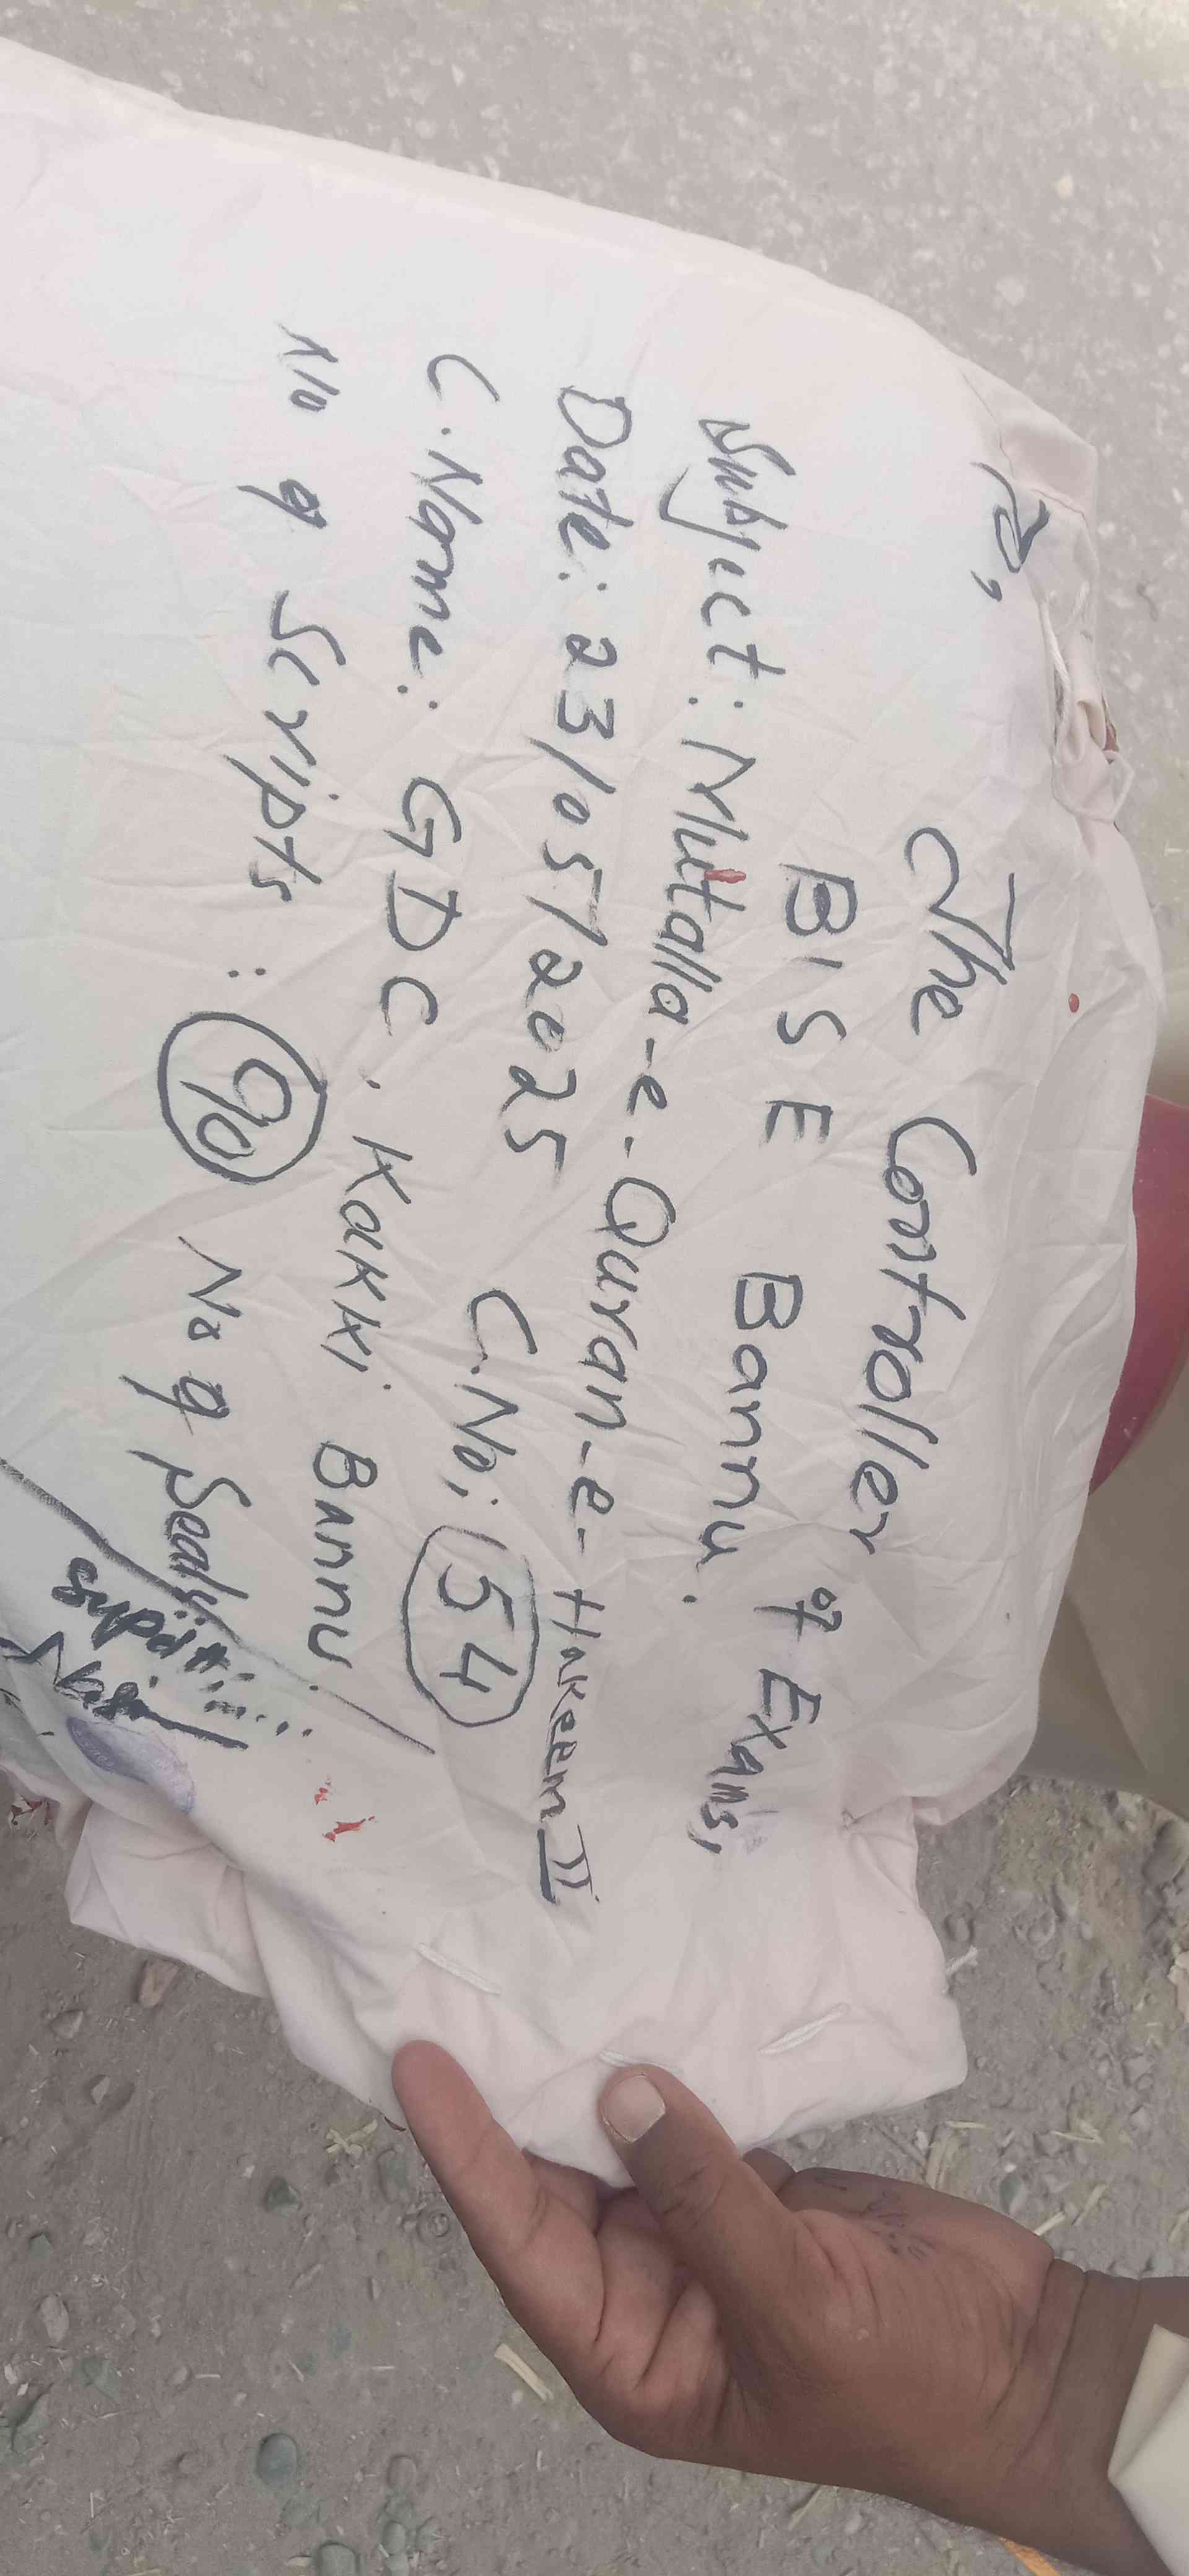 To,
The Controller of Exams,
BISE Bannu.
Subject: Muttalla-e-Quran-e-Hakeem II
Date: 23/05/2025 C.No; 54
C.Name: GDC, Kakki Bannu.
No of Scripts: 90 No of Seals: